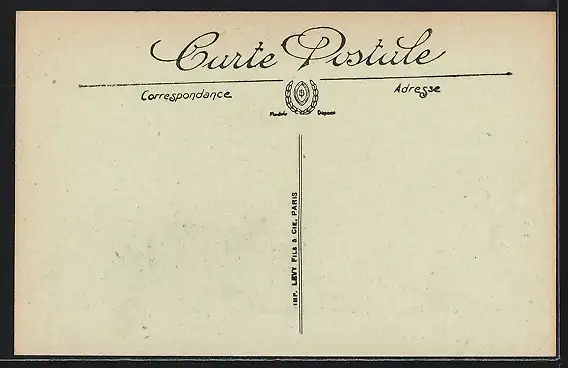 Carte Postale
Correspondance
Adresse
IMP. LEVY FILS & CIE, PARIS